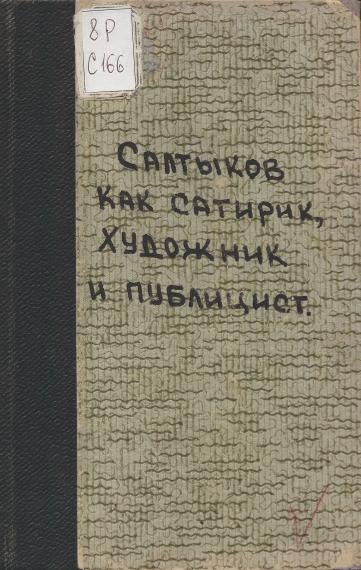 8Р
С166
Салтыков
как сатирик,
художник
и публицист.